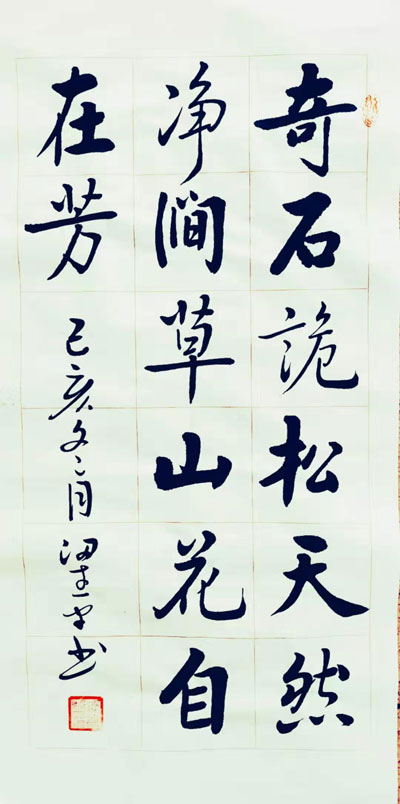 奇石詭松天然
净澗草山花自
在芳
己亥冬月梁书